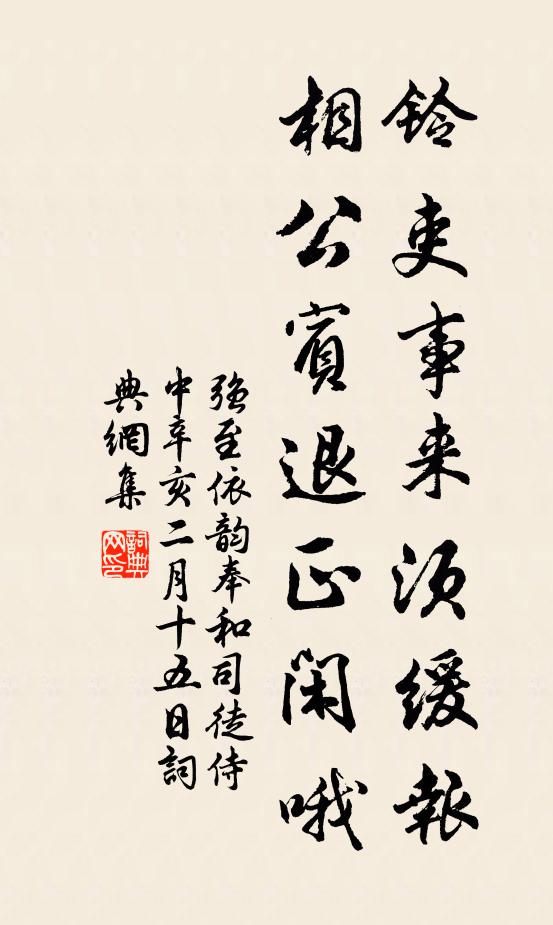 鈴吏事来須緩報
相公賓退正閑哦
強至依韵奉和司徒侍
中辛亥二月十五日詞
典網集
詞典
网印